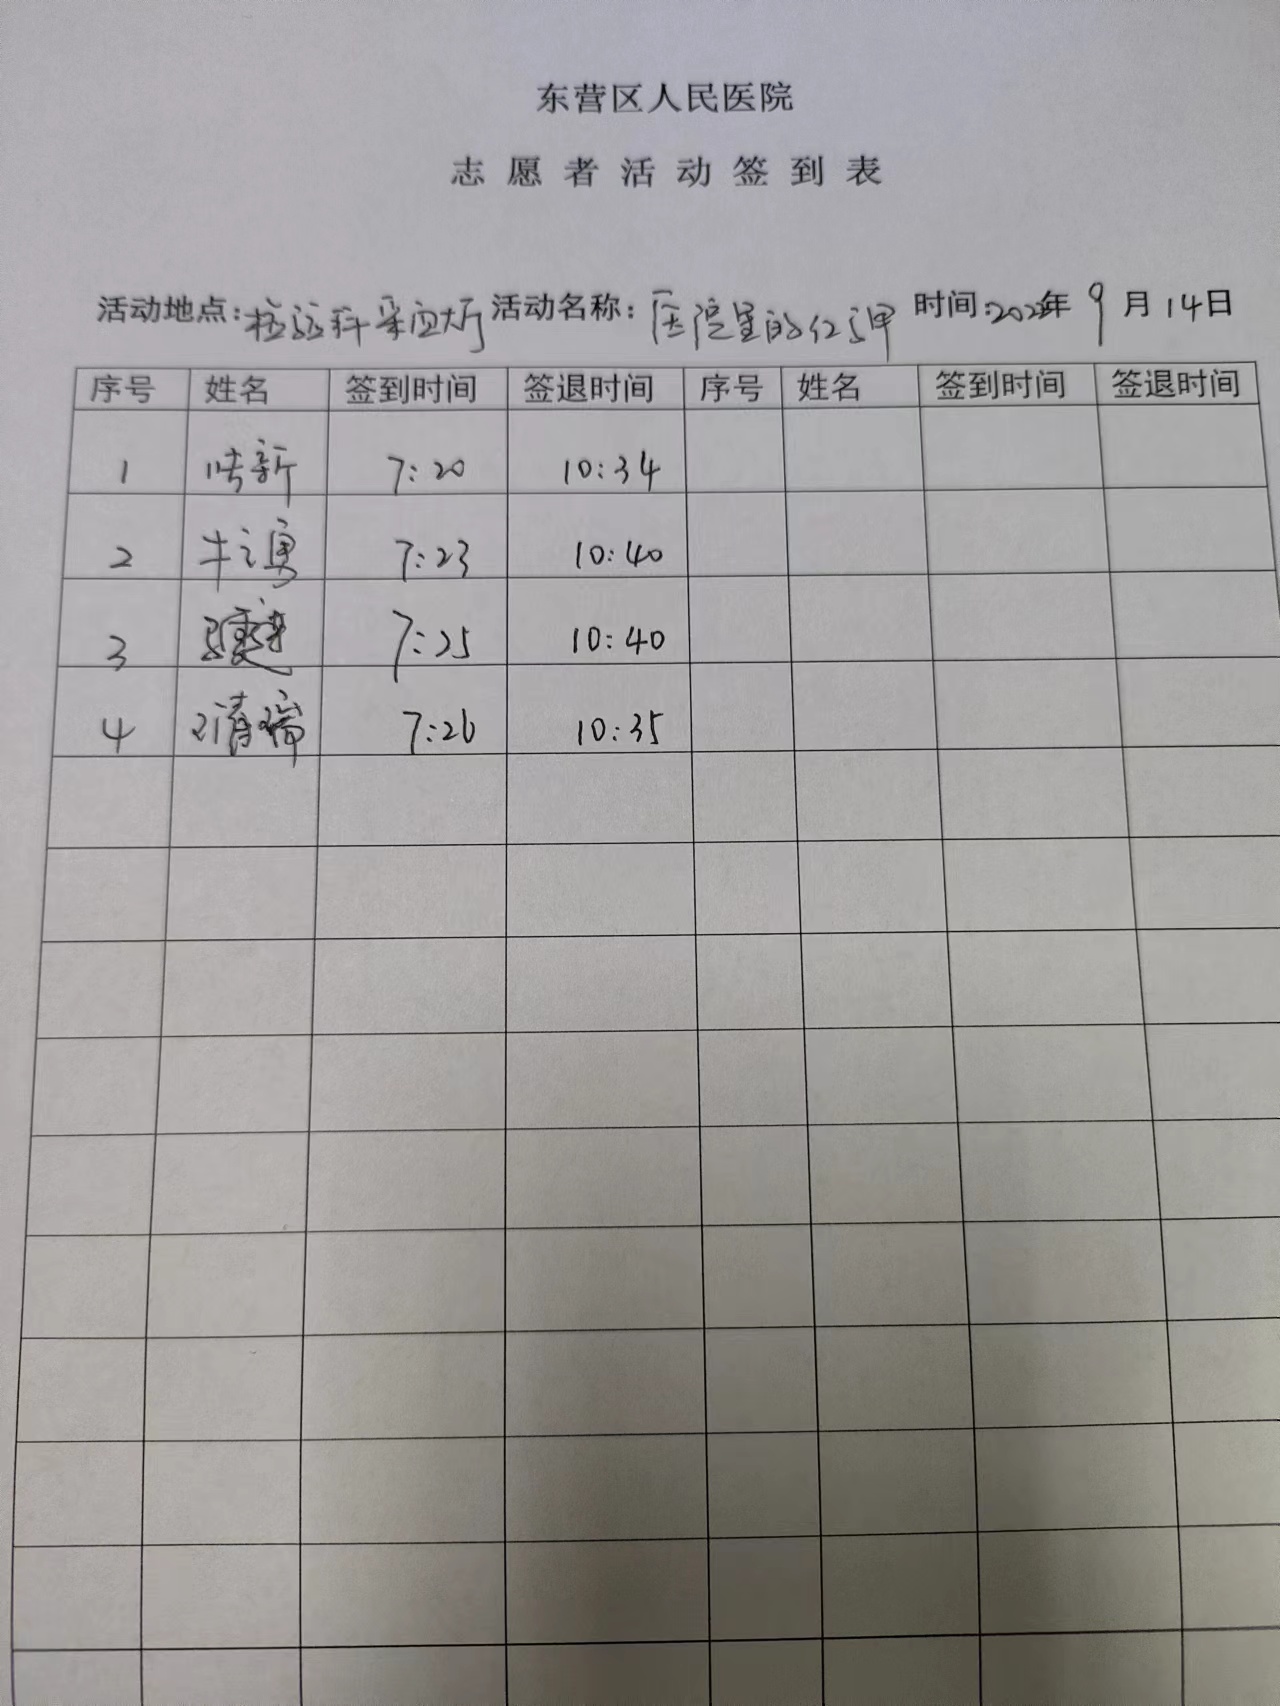 东营区人民医院
志愿者活动签到表
活动地点：检验科采血大厅 活动名称：医院里的红马甲 时间：202年 9月14日
序号 姓名 签到时间 签退时间 序号 姓名 签到时间 签退时间
1 新 7:20 10:34
2 牛之勇 7:23 10:40
3 7:25 10:40
4 清瑞 7:26 10:35